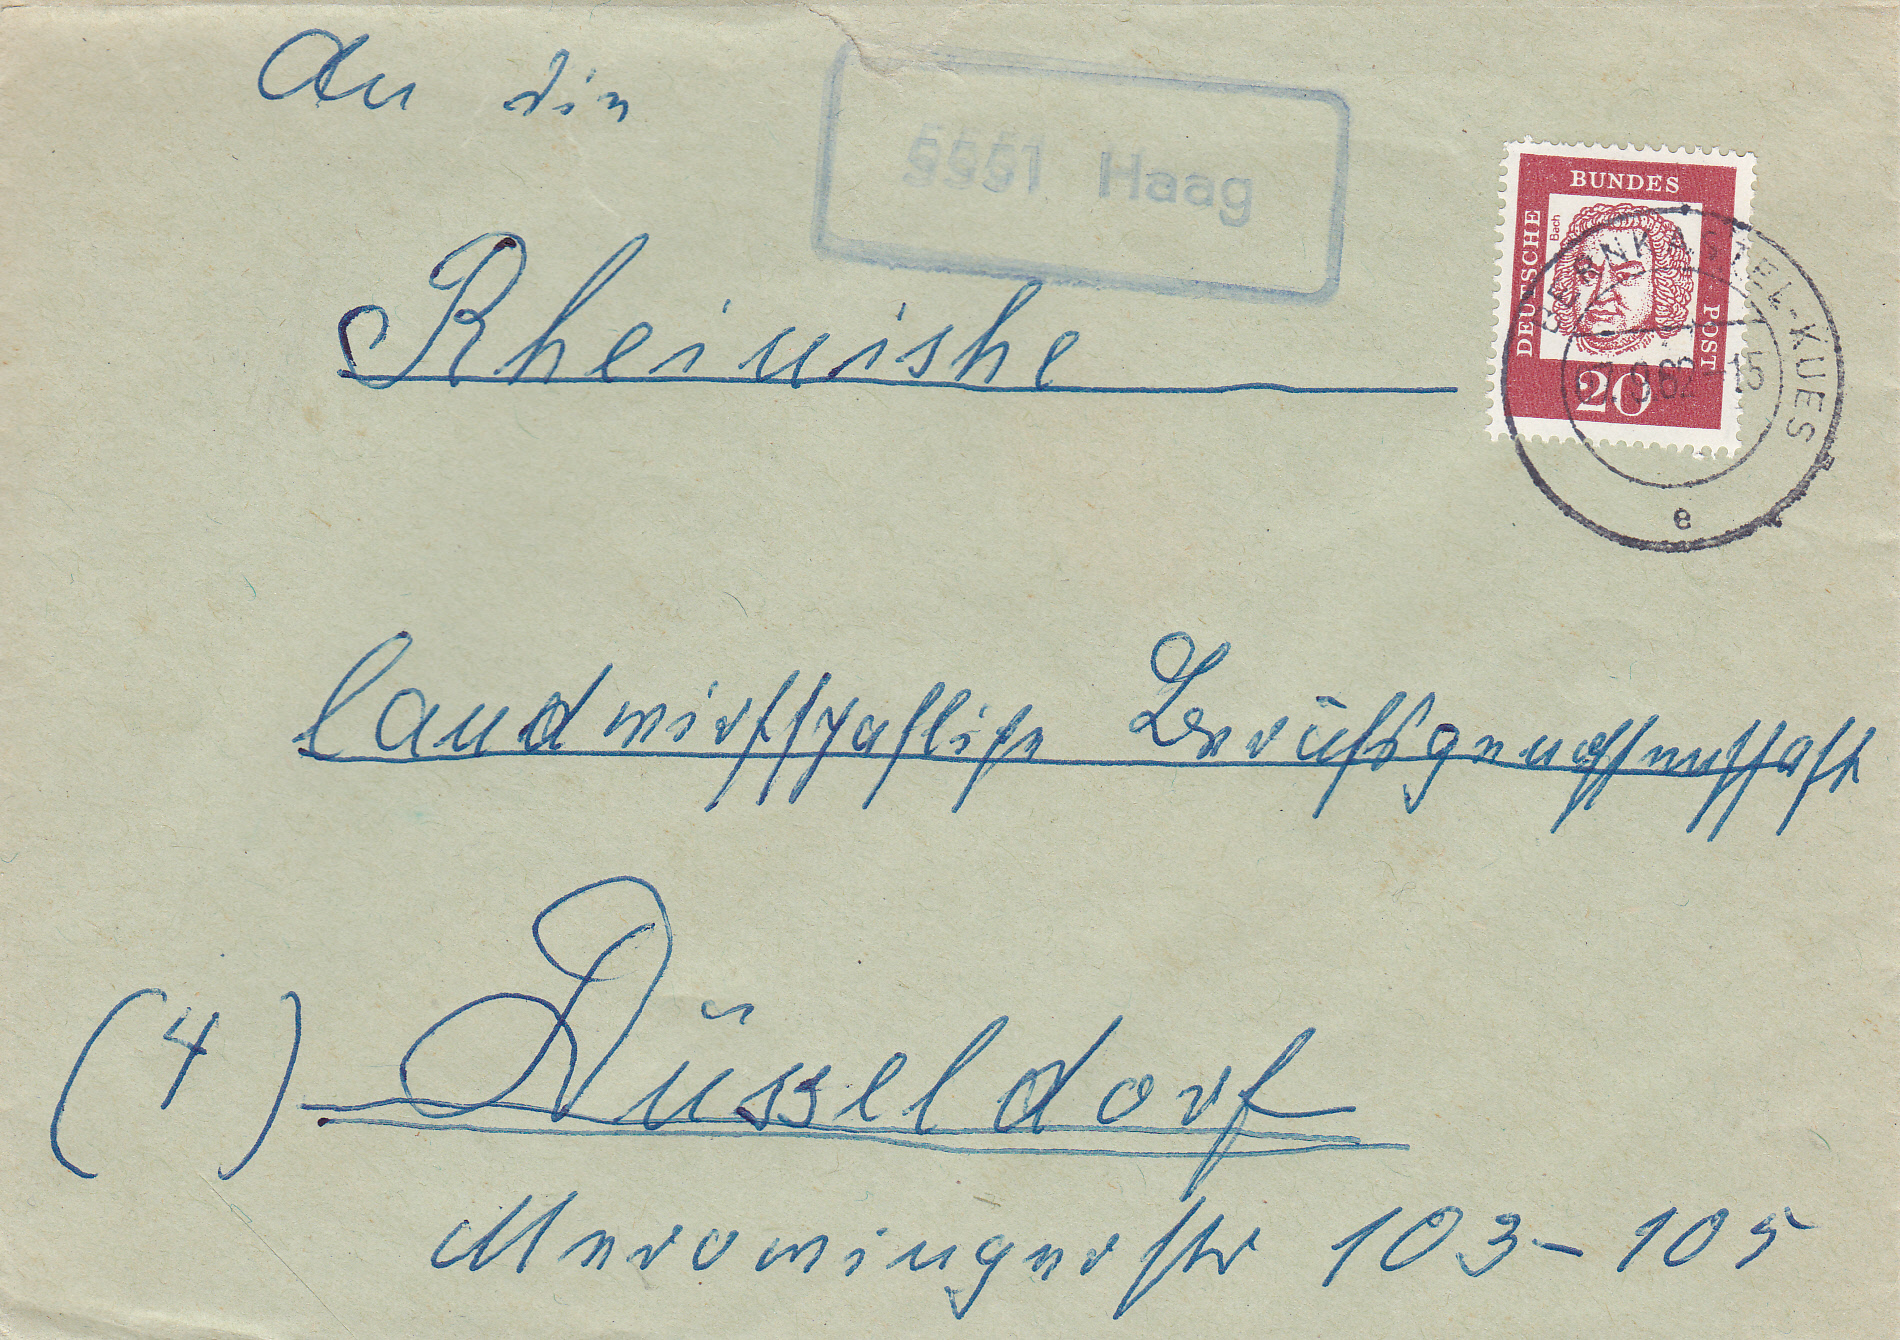 An die
5551 Haag
BUNDES
DEUTSCHE
POST
Bach
20
BERNKASTEL-KUES
-15
e
Rheinishe
landwirtschaftliche Berufsgenossenschaft
(4) Düsseldorf
Merowingerstr 103-105